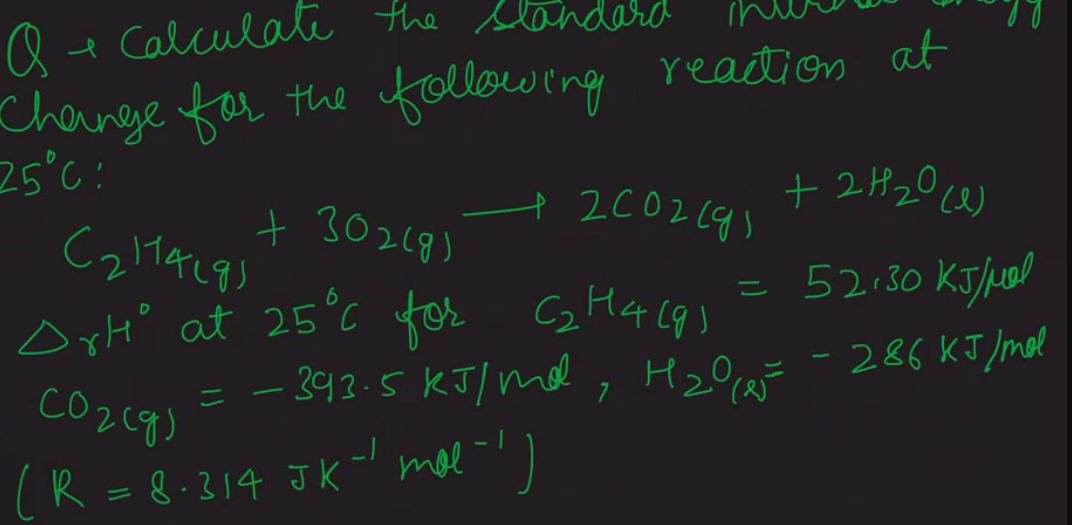 Q → Calculate the standard internal energy
Change for the following reaction at
25°C:
C2H4(g) + 3O2(g) → 2CO2(g) + 2H2O(l)
ΔrH° at 25°C for C2H4(g) = 52.30 KJ/mol
CO2(g) = -393.5 KJ/mol, H2O(l) = -286 KJ/mol
(R = 8.314 JK-1 mol-1)